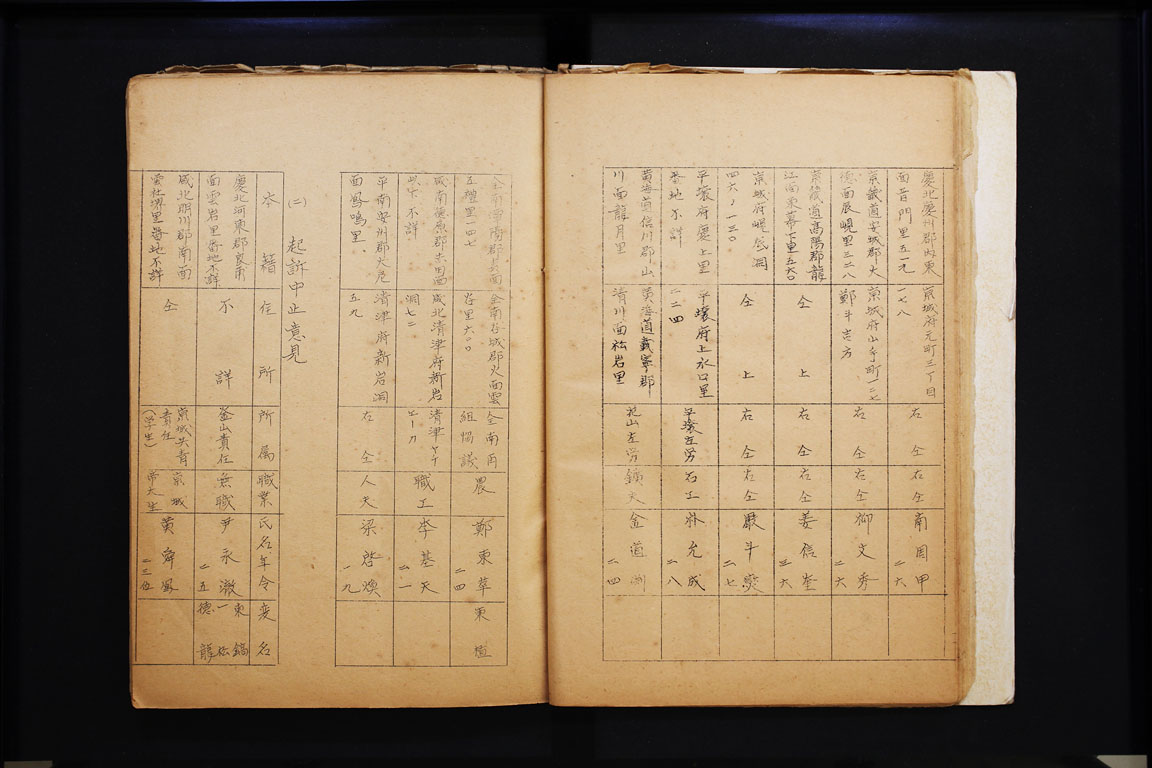 慶北慶州郡内東
面普門里五一九
京城府元町三丁目
一七八
右仝
右仝
南周甲
二六
京畿道安城郡大
徳面展峴里三二八
京城府山手町一二七
鄭斗吉方
右仝
右仝
柳文秀
二六
京畿道高陽郡龍
江面東幕下里五六〇
仝上
右仝
右仝
姜信奎
三六
京城府峴底洞
四六ノ一三〇
仝上
右仝
右仝
嚴斗燮
二七
平壌府慶上里
番地不詳
平壌府上水口里
二二四
平壌左労
石工
朴允成
二八
黄海道信川郡山
川面龍月里
黄海道載寧郡
清川面社岩里
花山左労
鑛夫
金道
二四
郡長面
五禮里一四七
全南谷城郡火面雲
谷里六〇〇
全南再
組協議
農
鄭東華
二四
東
咸南徳原郡赤田面
以下不詳
咸北清津府新岩
洞七二
清津ヤチ
エーカ
職工
李基天
二一
平南安州郡大尼
面鳳鳴里
清津府新岩洞
五九
右仝
人夫
梁啓煥
一九
(二)起訴中止意見
本籍
住所
所属
職業
氏名年令
変名
慶北河東郡良甫
面雲岩里番地不詳
不詳
釜山責任
無職
尹永激
二五
東鎬
一松
徳龍
咸北明川郡南面
雲社堺里番地不詳
仝
京城共青
責任
(学生)
京城
帝大生
黄舜鳳
二三位